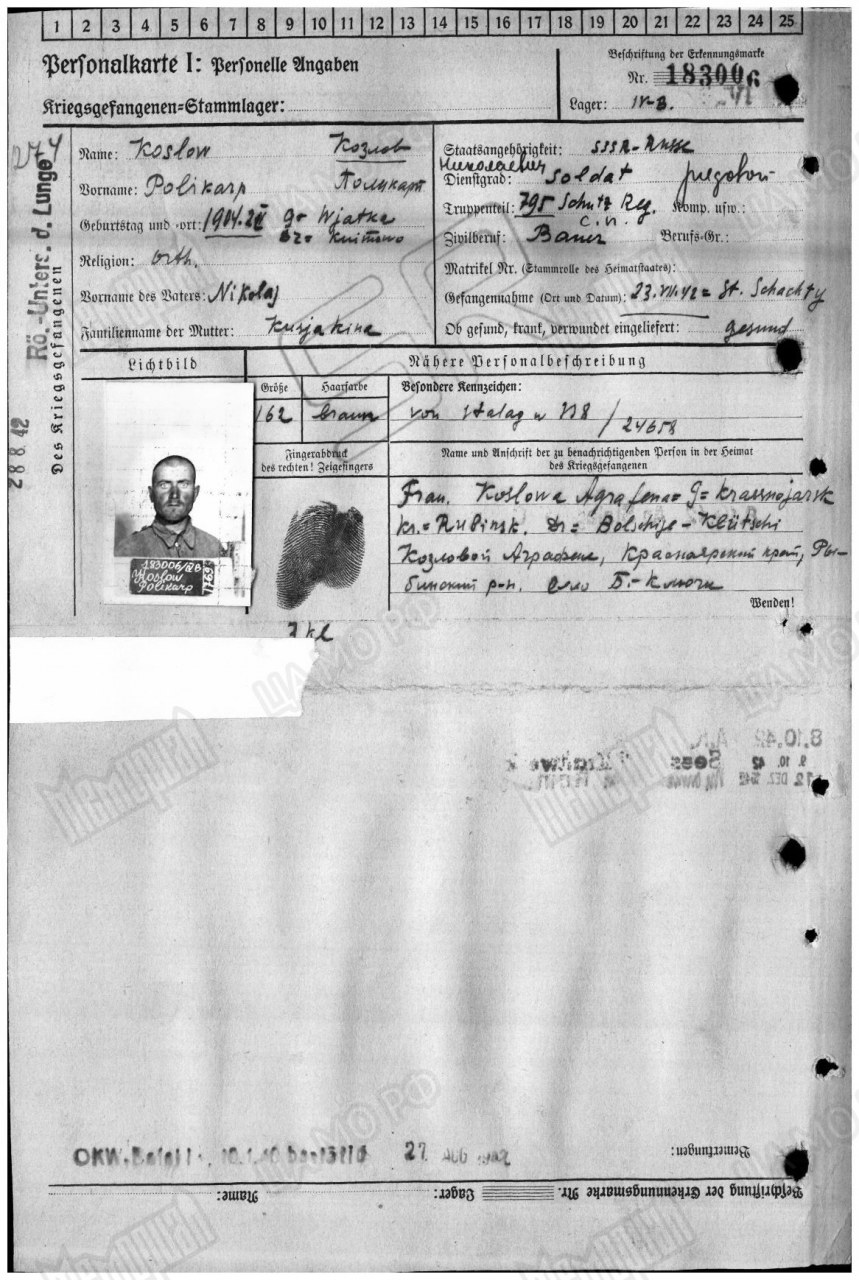 1 2 3 4 5 6 7 8 9 10 11 12 13 14 15 16 17 18 19 20 21 22 23 24 25
Personalkarte I: Personelle Angaben
Kriegsgefangenen-Stammlager:
Beschriftung der Erkennungsmarke
Nr. 183006
VI
Lager: IV-B.
274
Rö.-Unters. d. Lunge
28 8. 42
Des Kriegsgefangenen
Name: Koslow Козлов
Vorname: Polikarp Поликарп Николаевич
Geburtstag und -ort: 1904. G= Wjatka
Religion: Orth.
Vorname des Vaters: Nikolaj
Familienname der Mutter: Kurjakina
Staatsangehörigkeit: SSSR-Russe
Dienstgrad: Soldat рядовой
Truppenteil: 795 Schutz Reg. Komp. usw.:
с.п.
Zivilberuf: Bauer Berufs-Gr.:
Matrikel Nr. (Stammrolle des Heimatstaates):
Gefangennahme (Ort und Datum): 23.VII.42= St. Schachty
Ob gesund, krank, verwundet eingeliefert: gesund
Lichtbild
Nähere Personalbeschreibung
Größe Haarfarbe Besondere Kennzeichen:
162 braun von Stalag / 24658
Fingerabdruck
des rechten! Zeigefingers
Name und Anschrift der zu benachrichtigenden Person in der Heimat
des Kriegsgefangenen
Frau. Koslowa Agrafena= G= Krassnojarsk
kr.= Rubinsk. Dr= Bolschije-Klütschi
Козловой Аграфене, Красноярский край, Ры-
бинский р-н. село Б.-Ключи
Wenden!
183006/IVB
Koslow
Polikarp
8.10.42
9. 10. 42
12 DEZ. 1942
OKW. 27. AUG 1942
Bemerkungen:
Name: Lager: Beschriftung der Erkennungsmarke Nr.
Мемориал
ЦАМО РФ